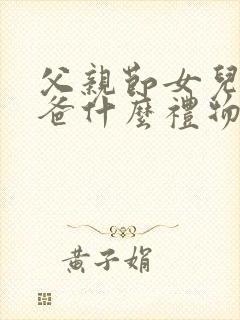 父親節女兒
爸什麼禮物
黃子娟